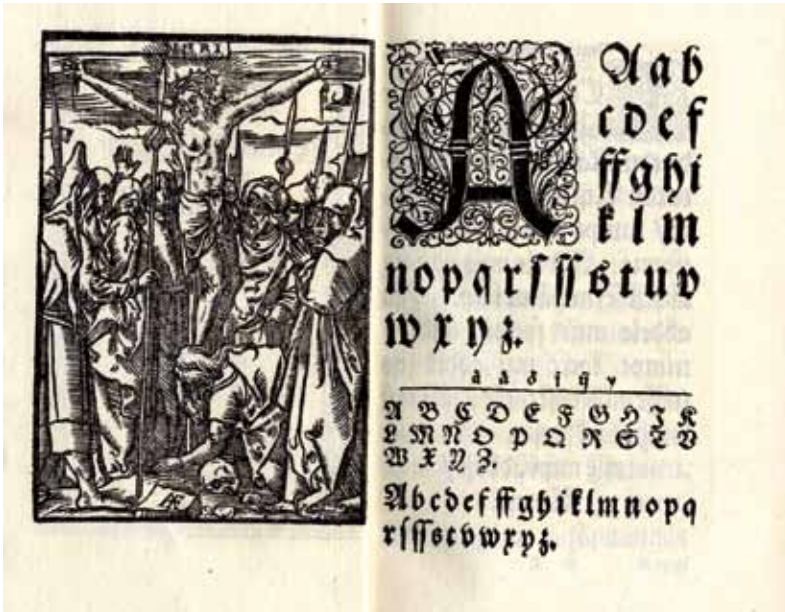 INRI
A
A a b
c d e f
ff g h i
k l m
n o p q r ſ ſſ s t u v
w x y z.
A B C D E F G H I K
L M N O P Q R S T V
W X Y Z.
Abcdefffghiklmnopq
rſſſstvwxyz.